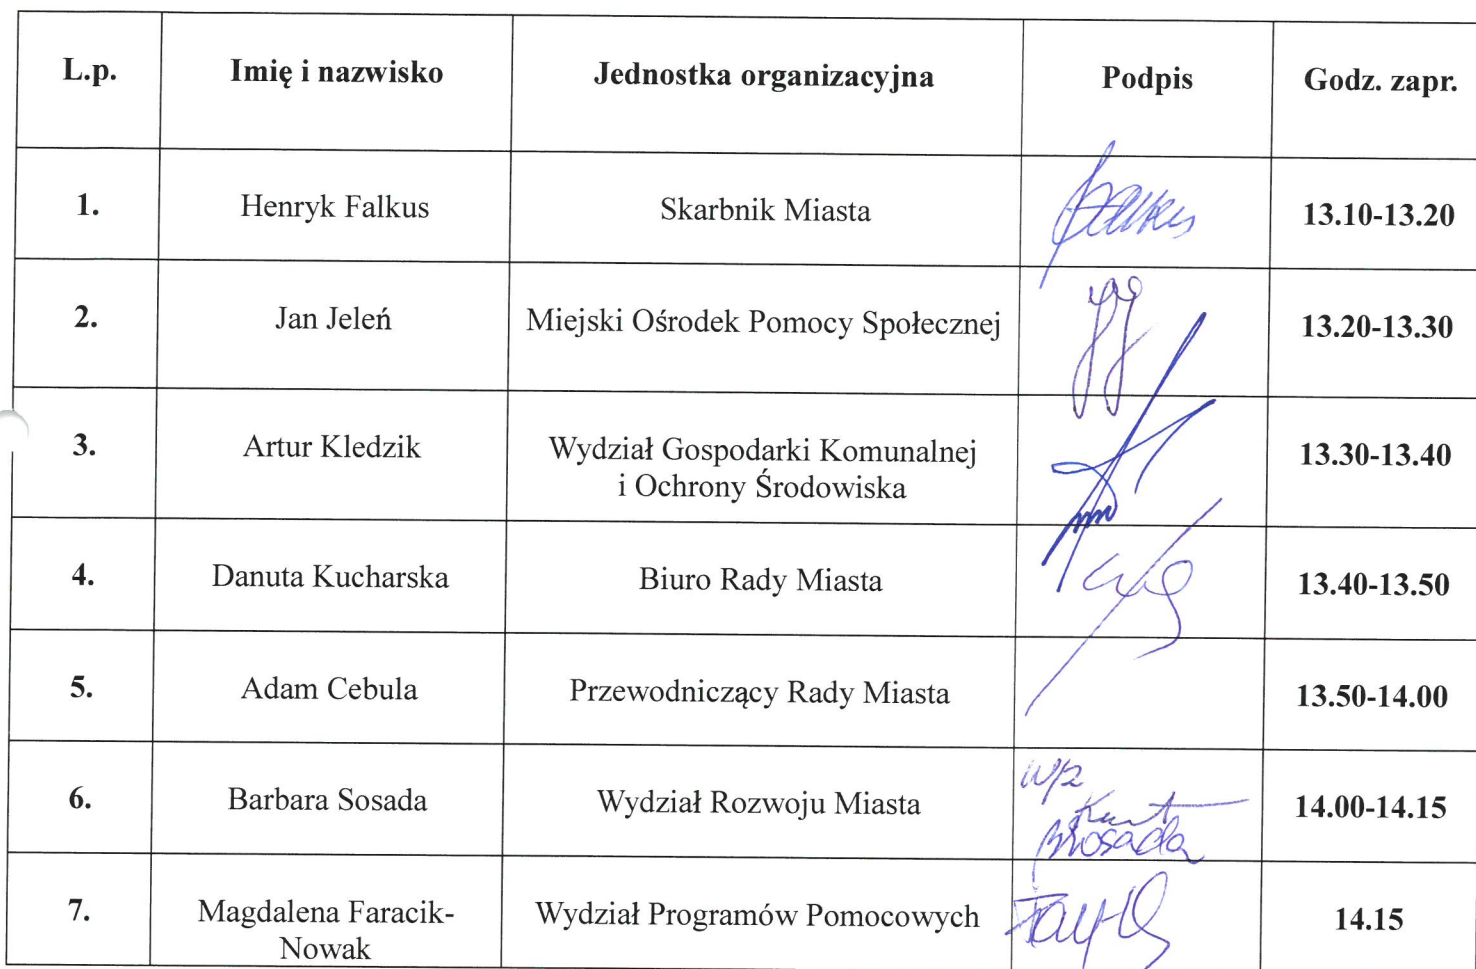 L.p. Imię i nazwisko Jednostka organizacyjna Podpis Godz. zapr.
1. Henryk Falkus Skarbnik Miasta 13.10-13.20
2. Jan Jeleń Miejski Ośrodek Pomocy Społecznej 13.20-13.30
3. Artur Kledzik Wydział Gospodarki Komunalnej 13.30-13.40
i Ochrony Środowiska
4. Danuta Kucharska Biuro Rady Miasta 13.40-13.50
5. Adam Cebula Przewodniczący Rady Miasta 13.50-14.00
6. Barbara Sosada Wydział Rozwoju Miasta w/z 14.00-14.15
BSosada
7. Magdalena Faracik- Wydział Programów Pomocowych 14.15
Nowak